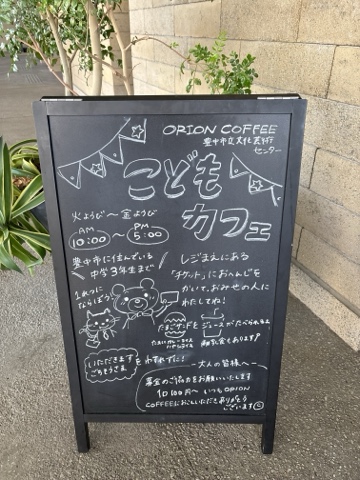 ORION COFFEE
豊中市立文化芸術
センター
こども
カフェ
火ようび〜金ようび
AM
10:00
〜
PM
5:00
豊中市に住んでいる
中学3年生まで
レジまえにある
「チケット」におへんじを
かいて、おみせの人に
わたしてね!
1れつに
ならぼう!
たまごサンドを
ジュースが
たべられるよ
いただきます
ごちそうさま
をわすれずに!
大人の皆様へ
募金のご協力をお願いいたします
1口100円〜 いつもORION
COFFEEにおこしいただきありがとう
ございます